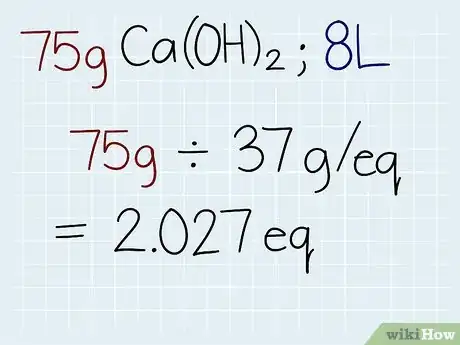 75g Ca(OH)₂; 8L
75g ÷ 37 g/eq
= 2.027 eq
wikiHow